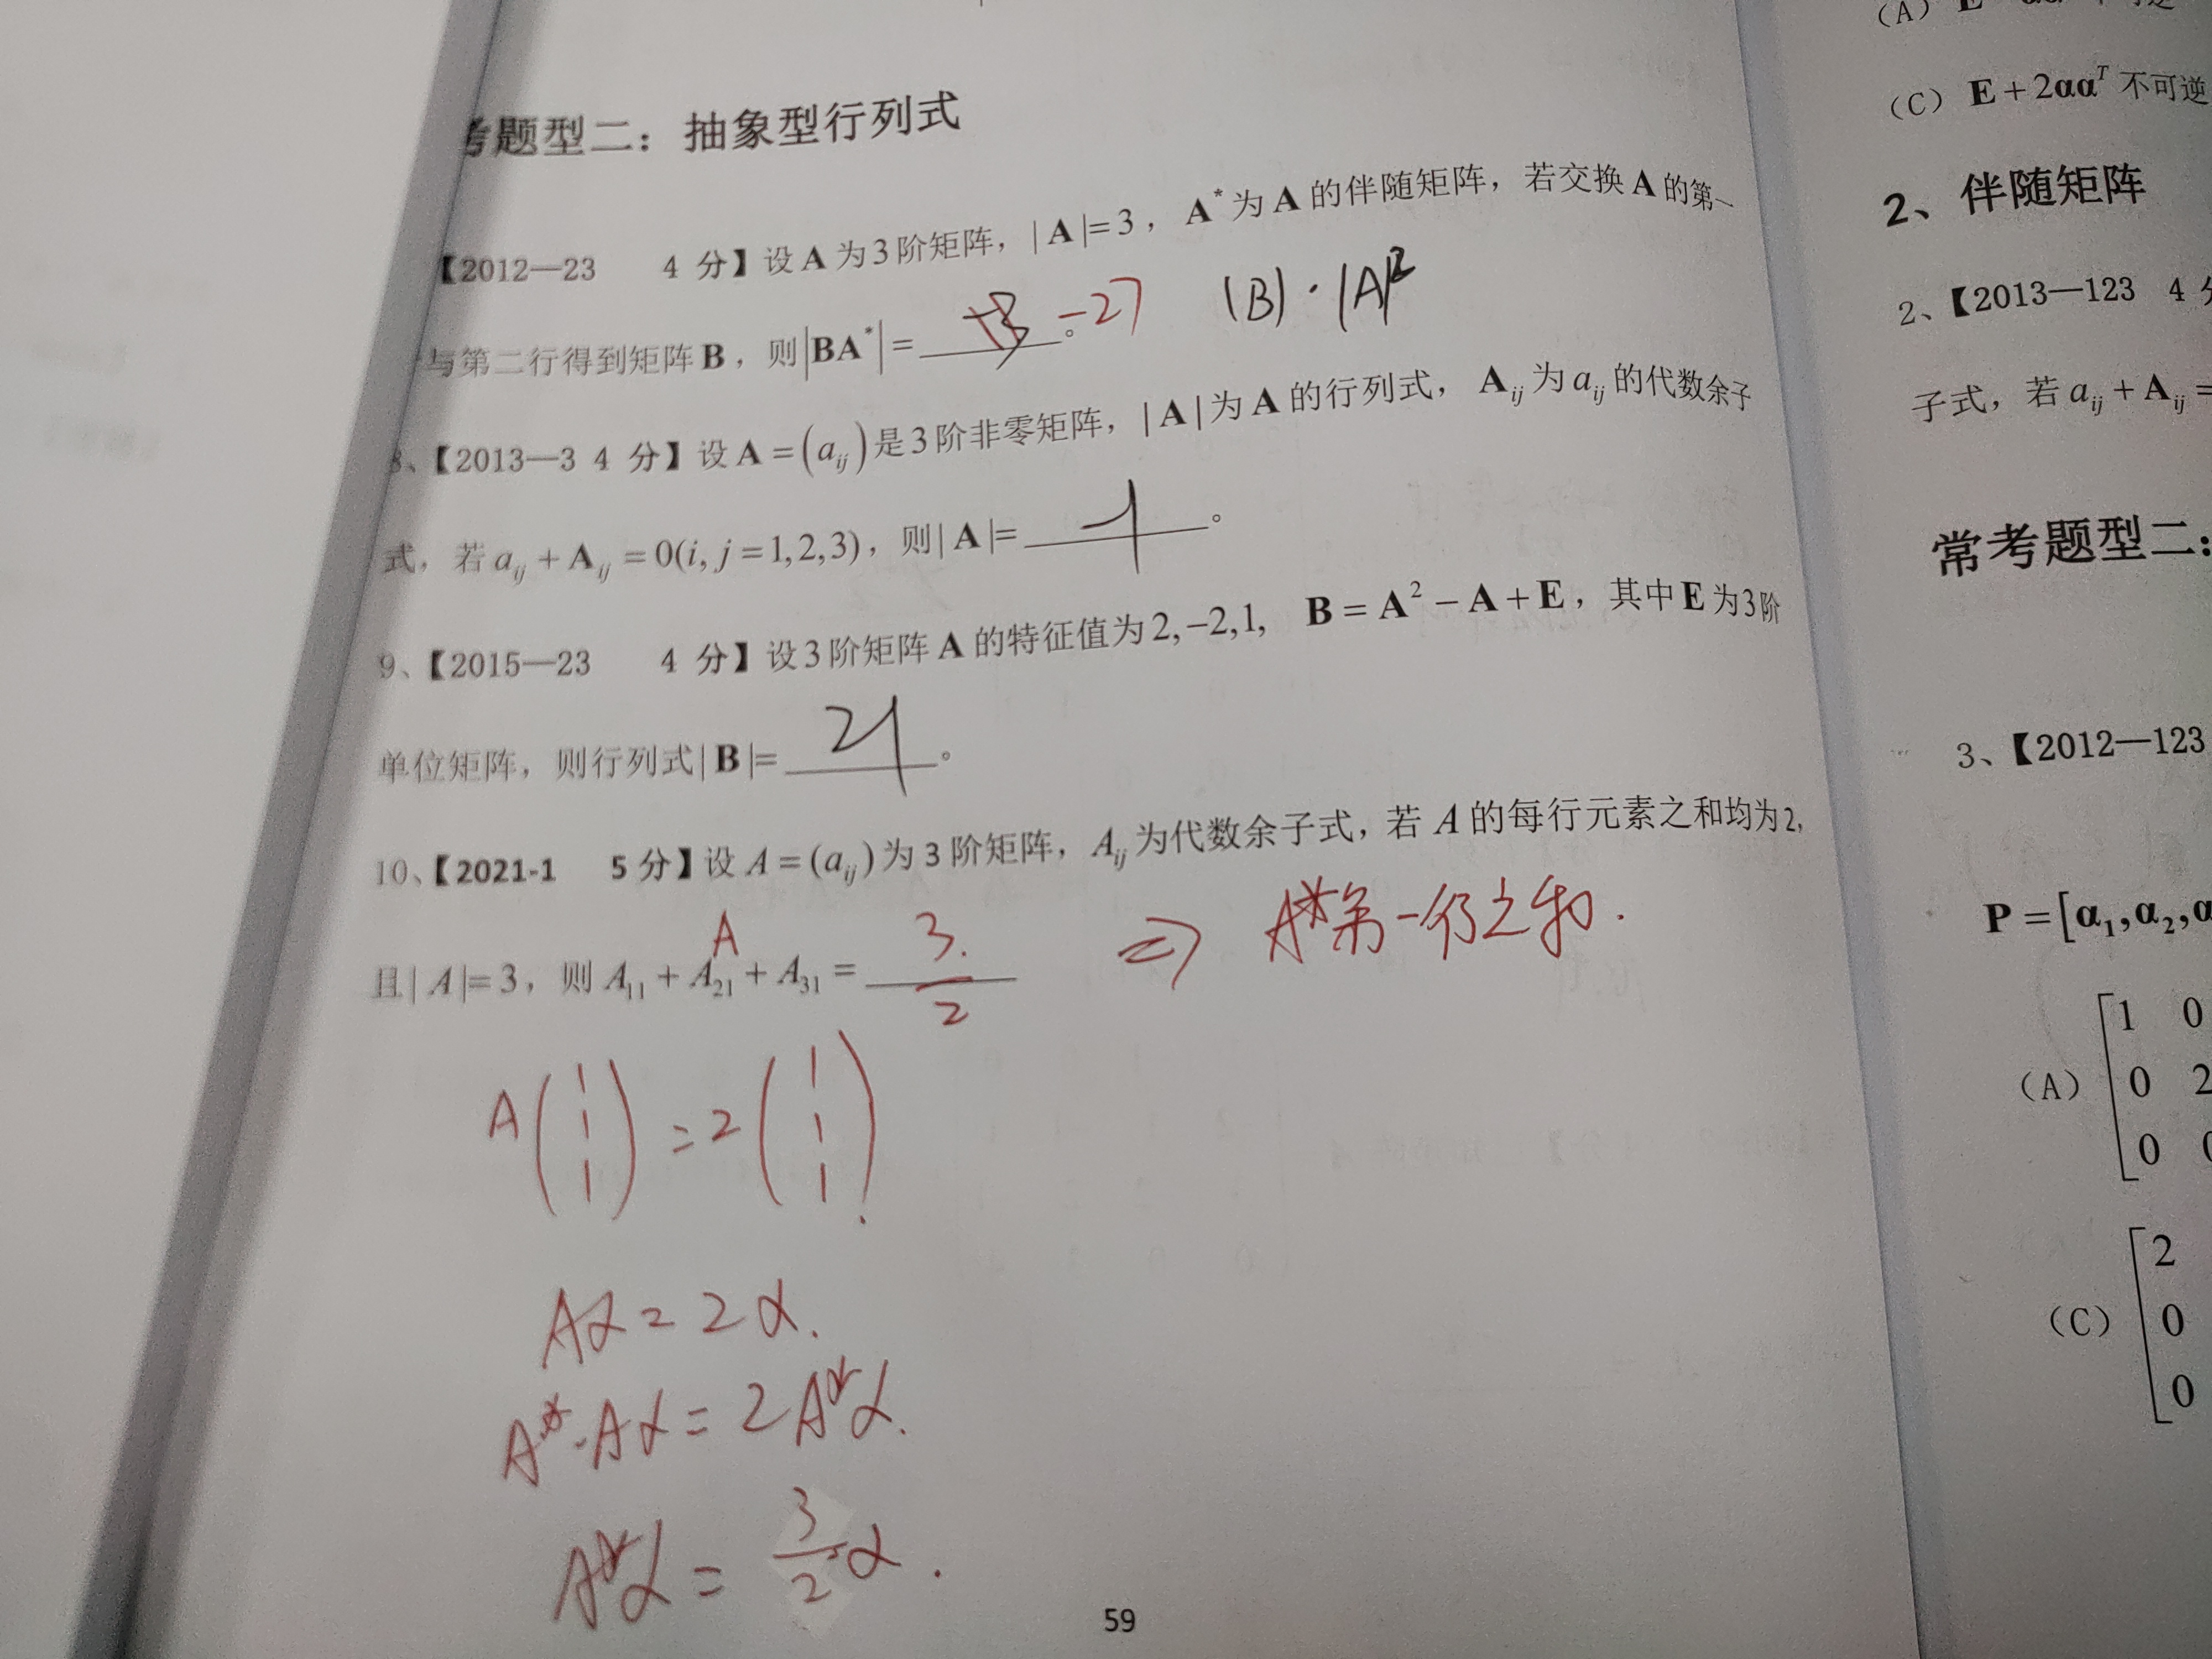 考题型二：抽象型行列式
【2012—23 4 分】设 A 为 3 阶矩阵，| A |= 3，A* 为 A 的伴随矩阵，若交换 A 的第一
与第二行得到矩阵 B，则|BA*|= 。 -27 |B|·|A|²
8、【2013—3 4 分】设 A = (aij) 是 3 阶非零矩阵，| A | 为 A 的行列式，Aij 为 aij 的代数余子
式，若 aij + Aij = 0(i, j = 1,2,3)，则| A |= -1 。
9、【2015—23 4 分】设 3 阶矩阵 A 的特征值为 2,−2,1, B = A² − A + E，其中 E 为 3 阶
单位矩阵，则行列式| B |= 21 。
10、【2021-1 5 分】设 A = (aij) 为 3 阶矩阵，Aij 为代数余子式，若 A 的每行元素之和均为 2,
A
且| A |= 3，则 A11 + A21 + A31 = 3/2 ⇒ A*第一行之和.
A(1 1 1) = 2(1 1 1).
Aα = 2α.
A*·Aα = 2A*α.
A*α = 3/2 α.
59
(A) E
(C) E + 2αα^T 不可逆
2、伴随矩阵
2、【2013—123 4 分
子式，若 aij + Aij =
常考题型二：
3、【2012—123
P = [α1, α2, α
(A)
1 0
0 2
0 0
(C)
2
0
0